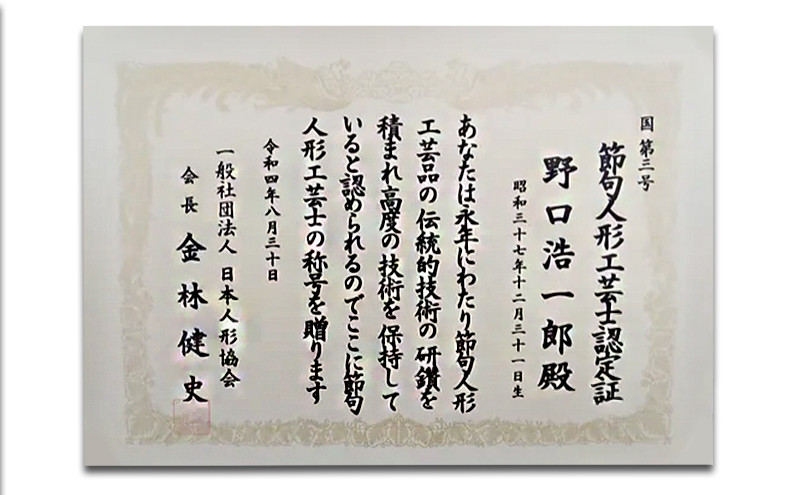 国第三号
節句人形工芸士認定証
野口浩一郎殿
昭和三十七年十二月三十一日生
あなたは永年にわたり節句人形
工芸品の伝統的技術の研鑽を
積まれ高度の技術を保持して
いると認められるのでここに節句
人形工芸士の称号を贈ります
令和四年八月三十日
一般社団法人 日本人形協会
会長 金林健史